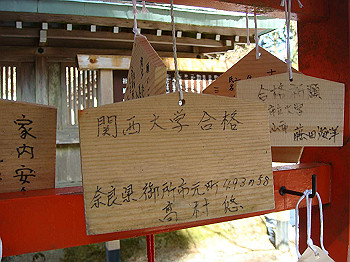 関西大学合格
奈良県御所市元町493の58
高村悠
家内安
合格祈願
藤田海洋